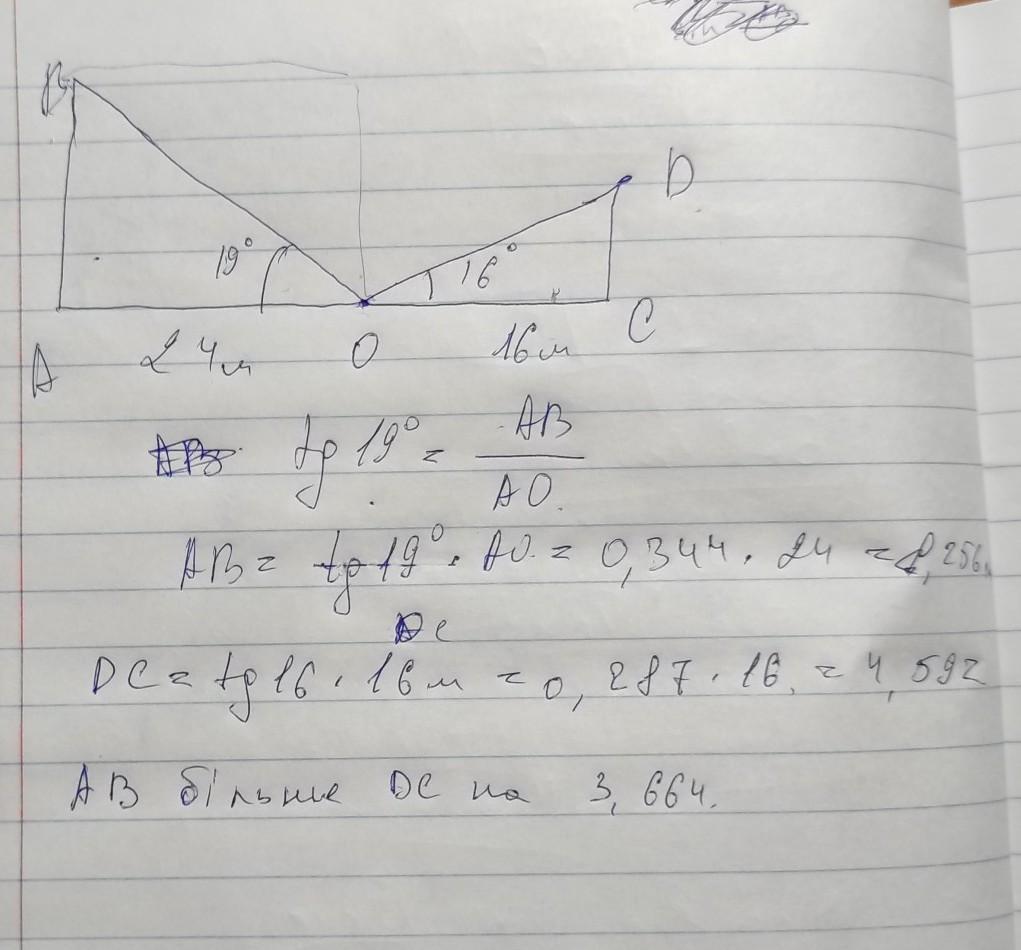 B
D
19°
16°
A 24м O 16м C
tg 19° = AB / AO.
AB = tg 19° · AO = 0,344 · 24 = 8,256.
DC = tg 16 · 16м = 0,287 · 16 = 4,592
AB більше DC на 3,664.